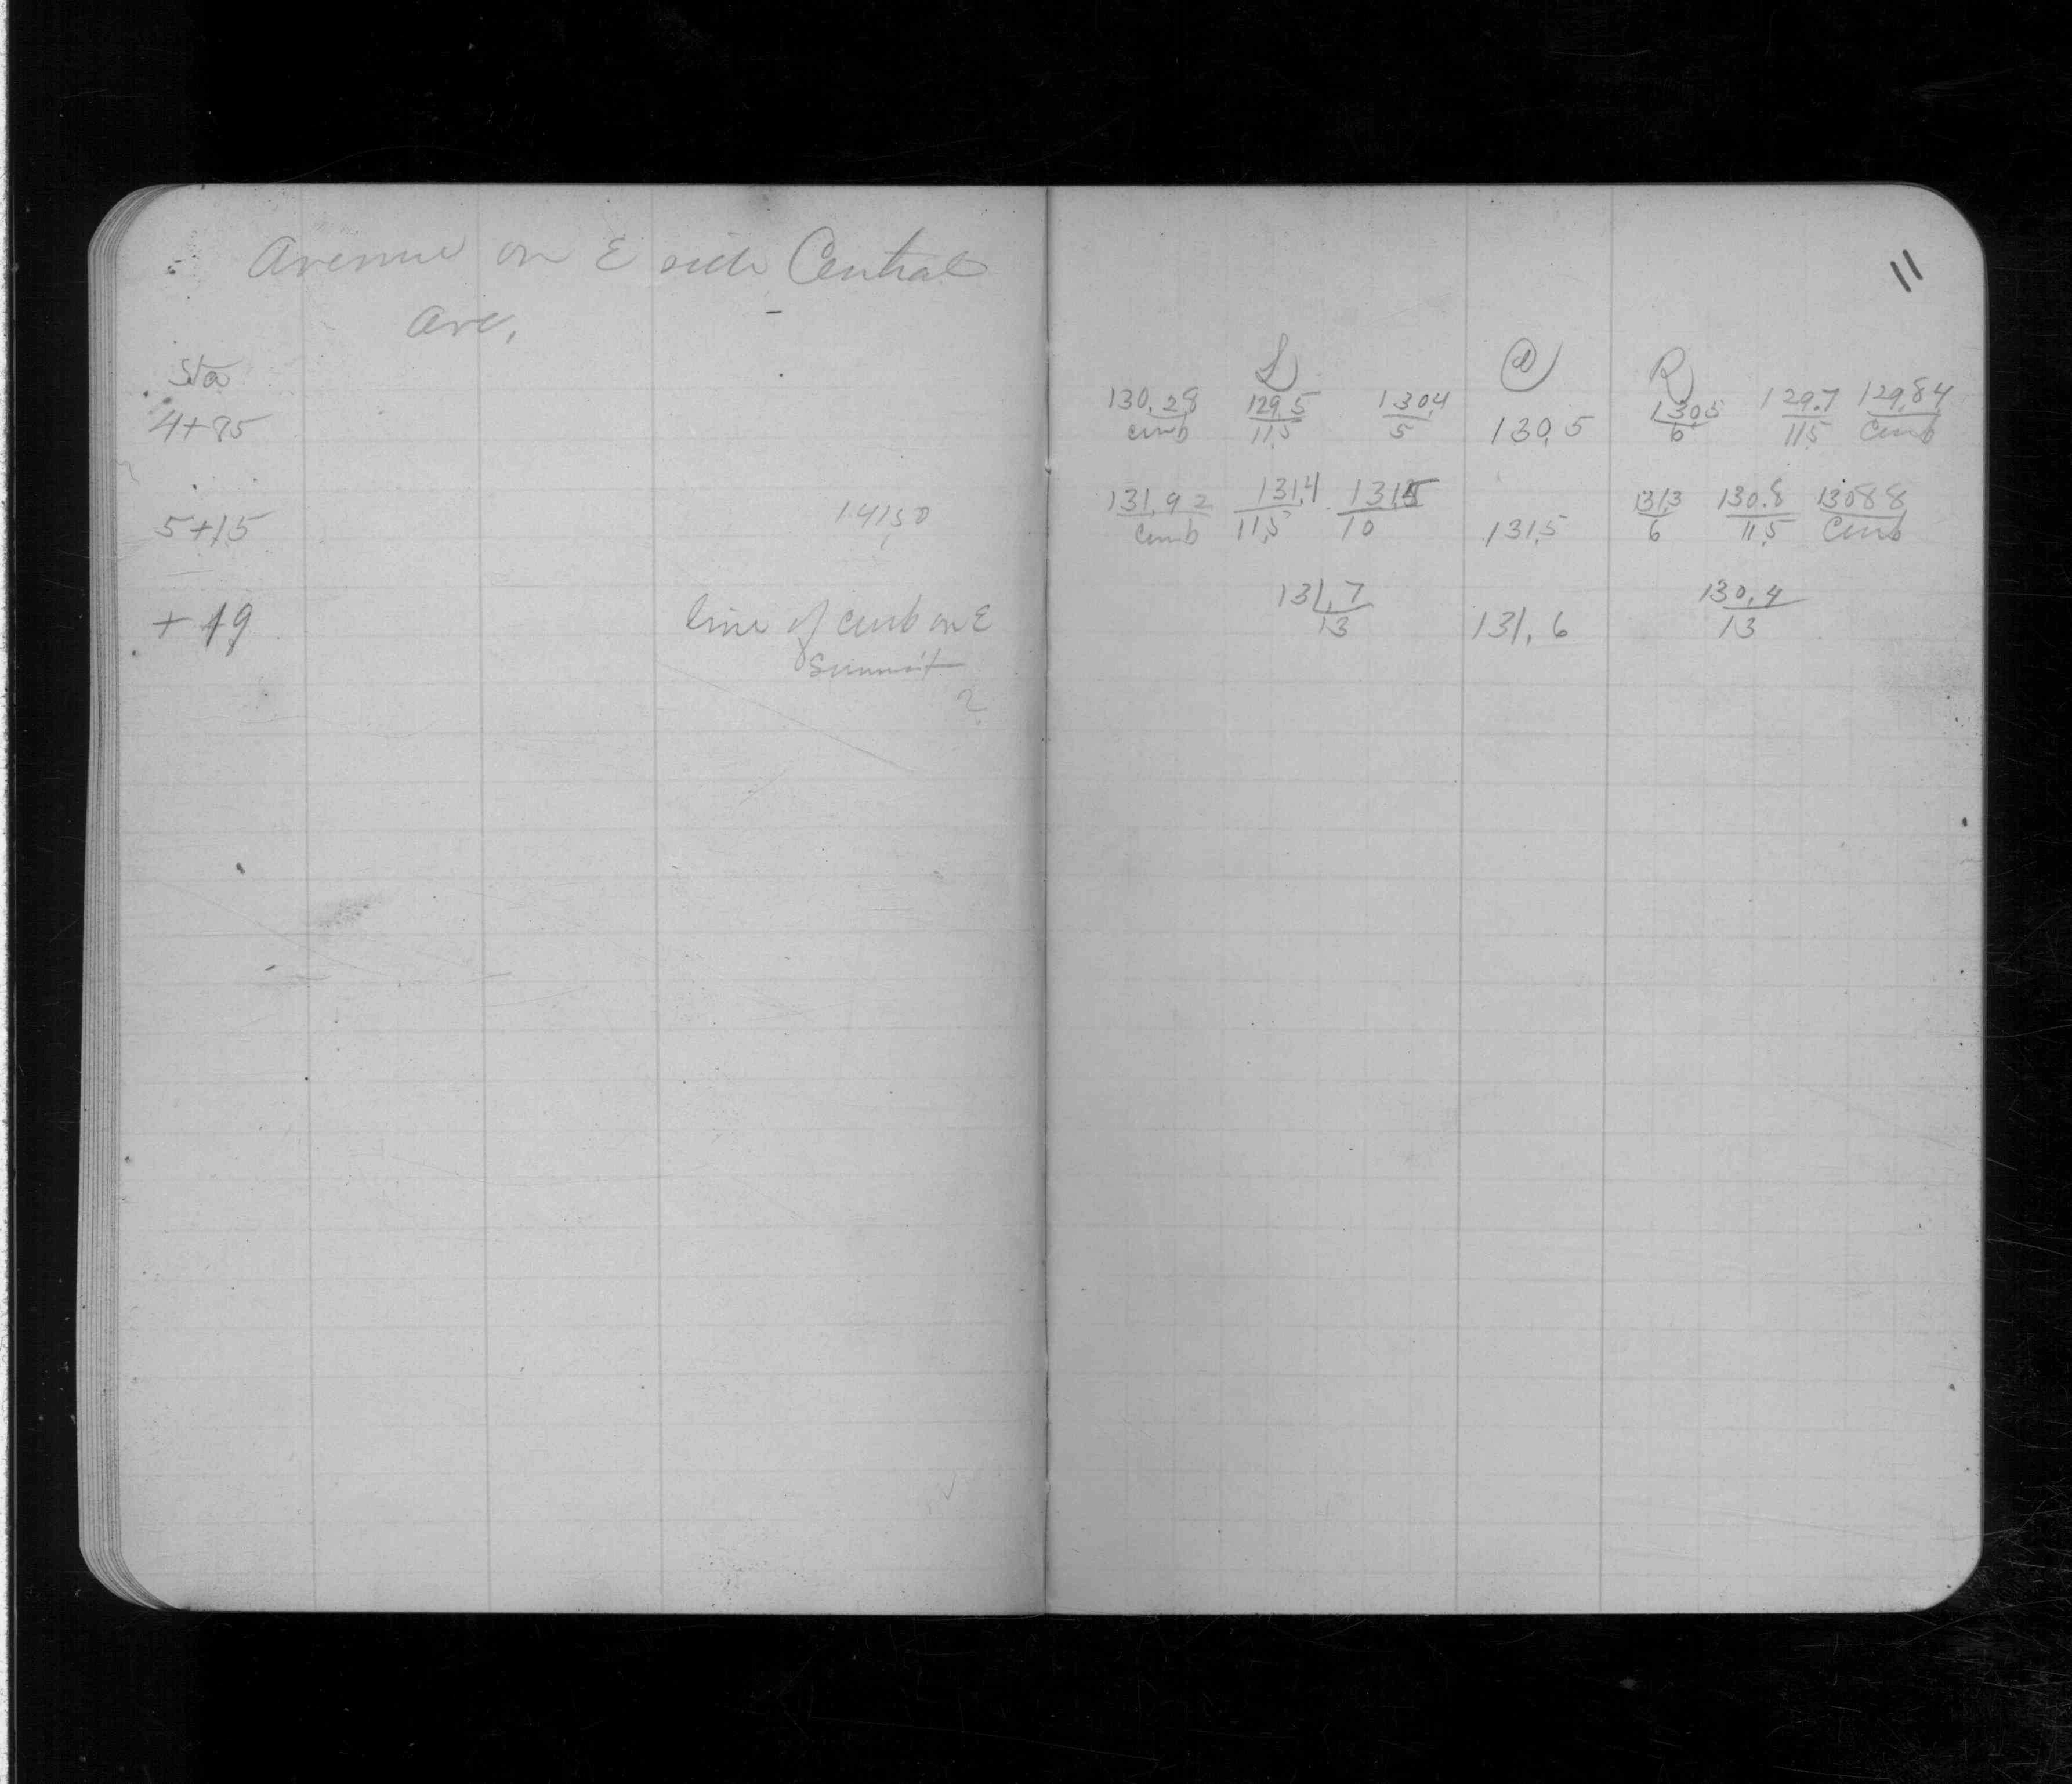 Avenue on E side Central
Ave.
Sta
4+85
5+15 141.50
+ 19 line of curb on E
Summit
?
11
L ⓓ R
130.28 129.5 130.4 130.5 129.7 129.84
curb 11.5 5 130.5 6 11.5 Curb
131.92 131.4 131.5 131.3 130.8 130.88
Curb 11.5 10 131.5 6 11.5 Curb
131.7 130.4
13 131.6 13